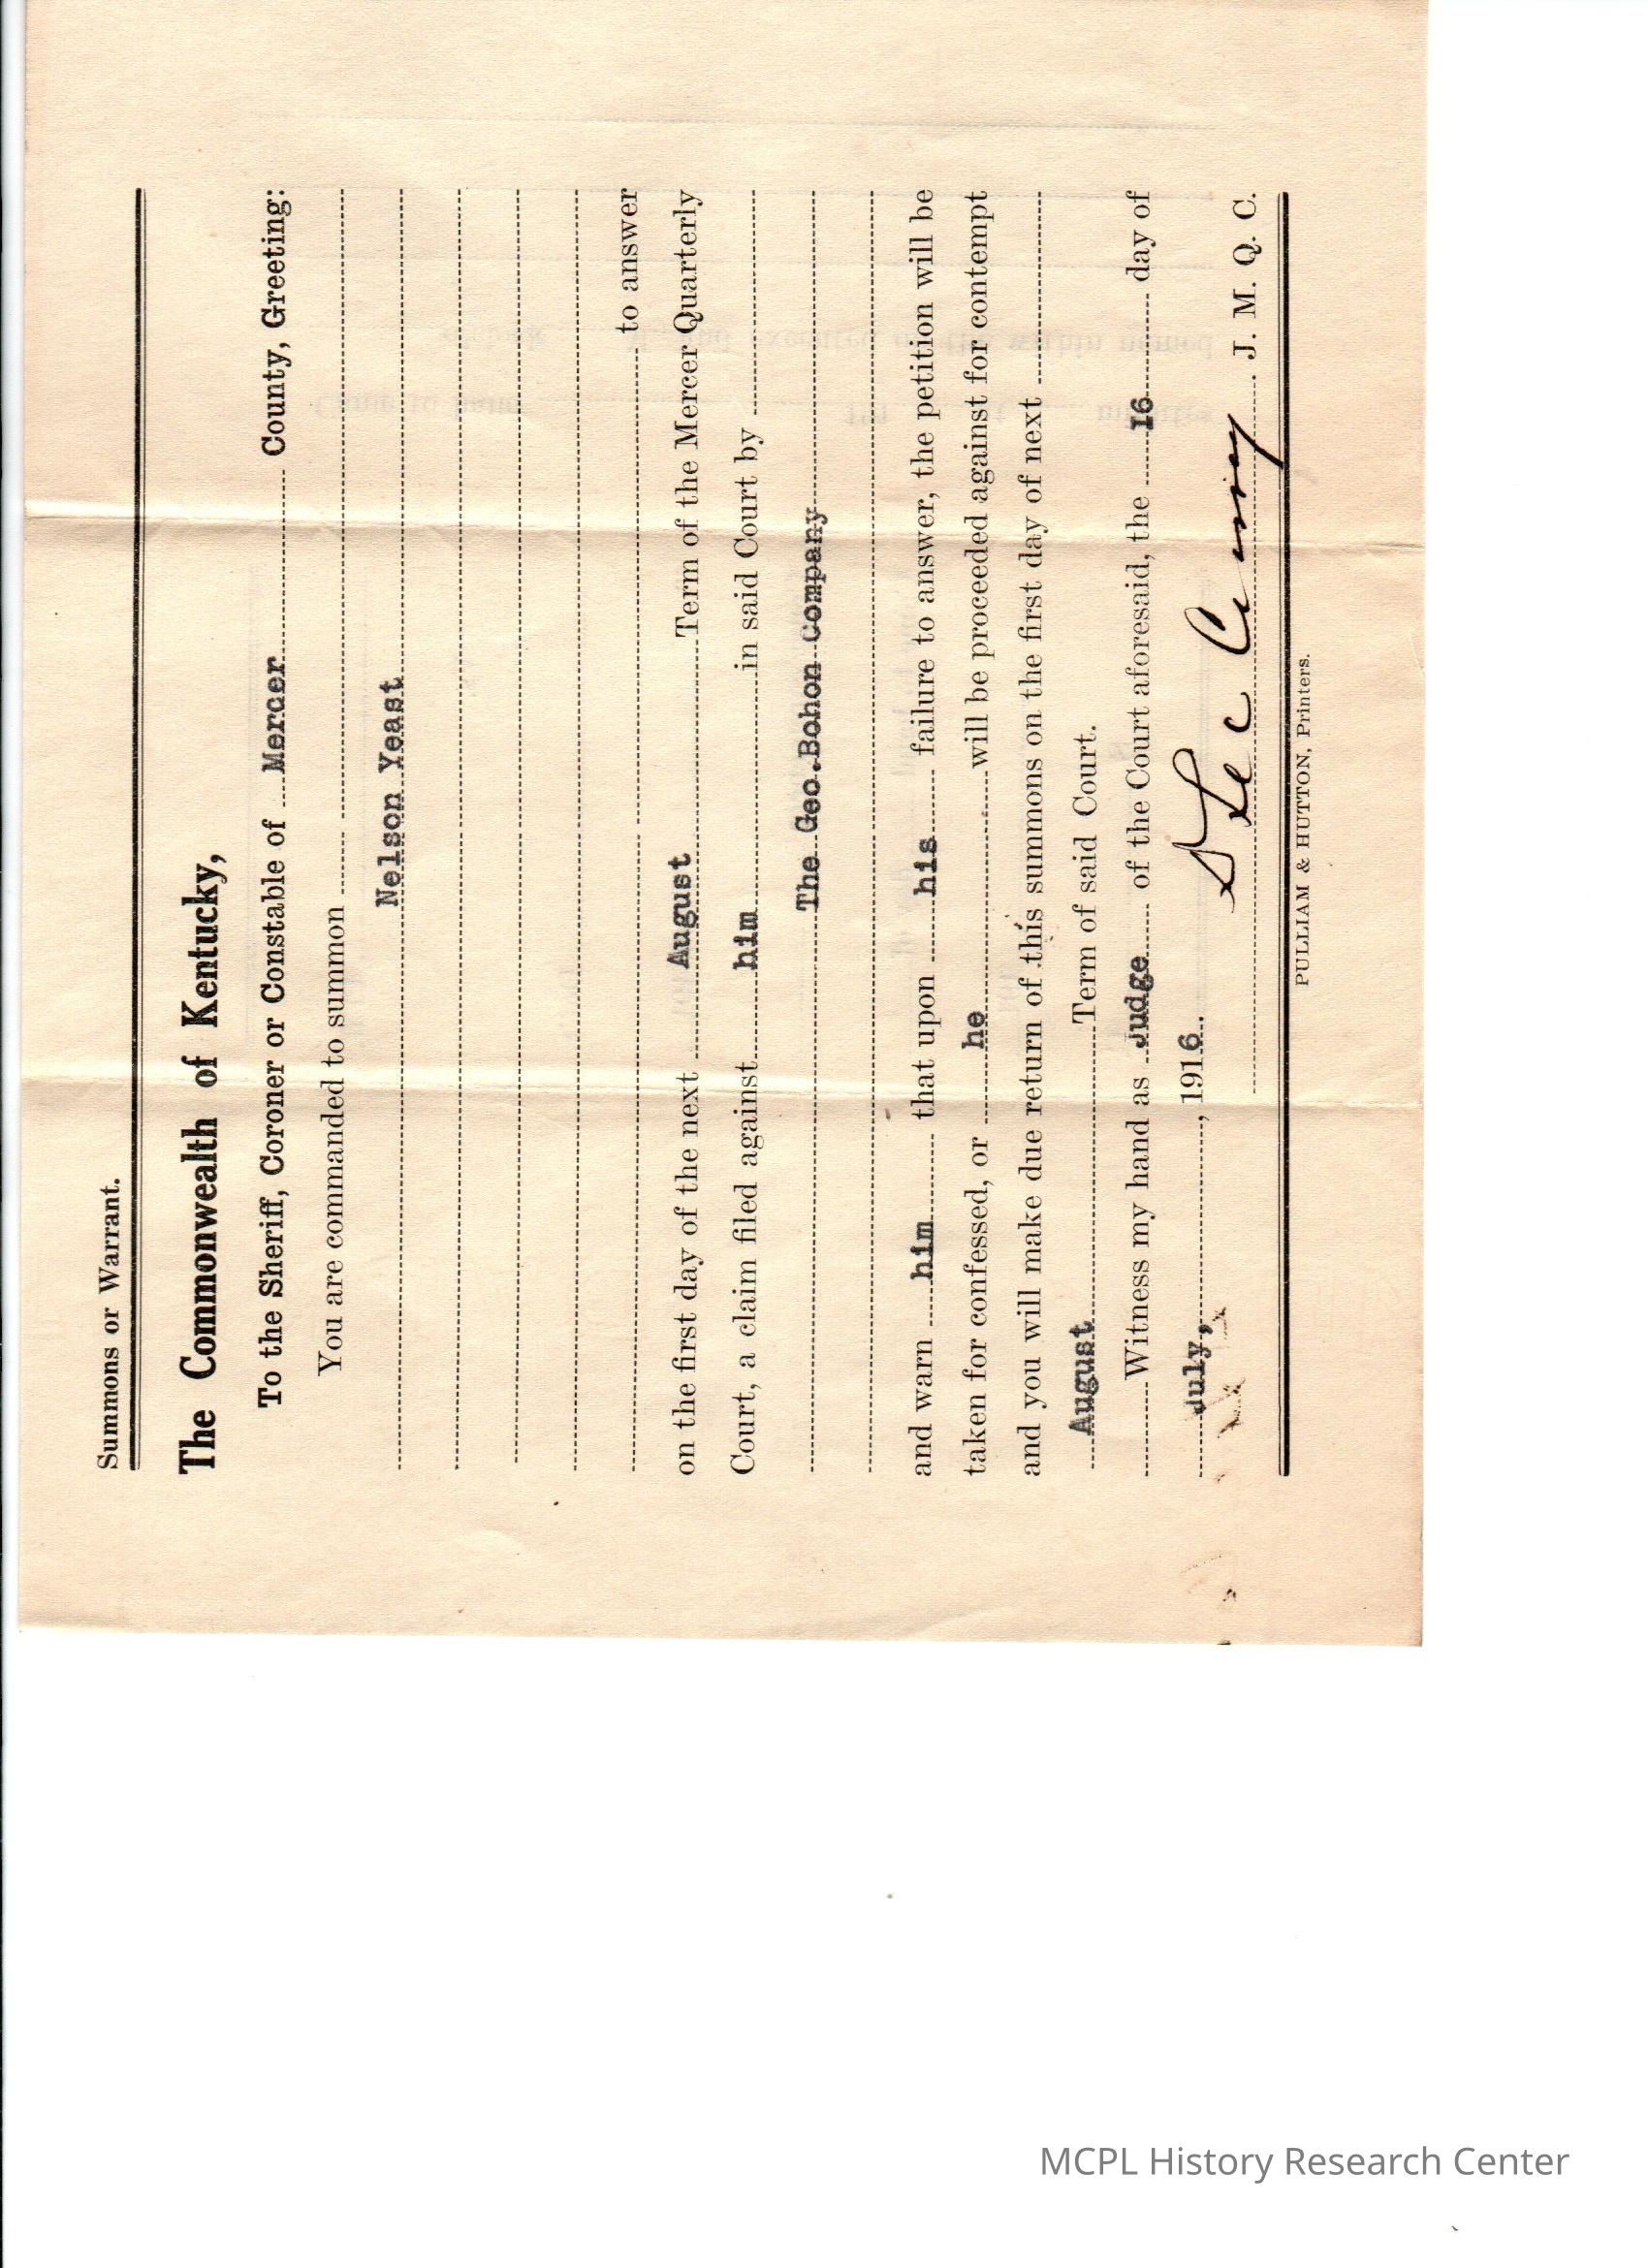 Summons or Warrant.
The Commonwealth of Kentucky,
To the Sheriff, Coroner or Constable of Mercer County, Greeting:
You are commanded to summon
Nelson Yeast
to answer
on the first day of the next August Term of the Mercer Quarterly
Court, a claim filed against him in said Court by
The Geo.Bohon Company
and warn him that upon his failure to answer, the petition will be
taken for confessed, or he will be proceeded against for contempt
and you will make due return of this summons on the first day of next
August Term of said Court.
Witness my hand as Judge of the Court aforesaid, the 16 day of
July, , 1916.
J. M. Q. C.
PULLIAM & HUTTON, Printers.
MCPL History Research Center